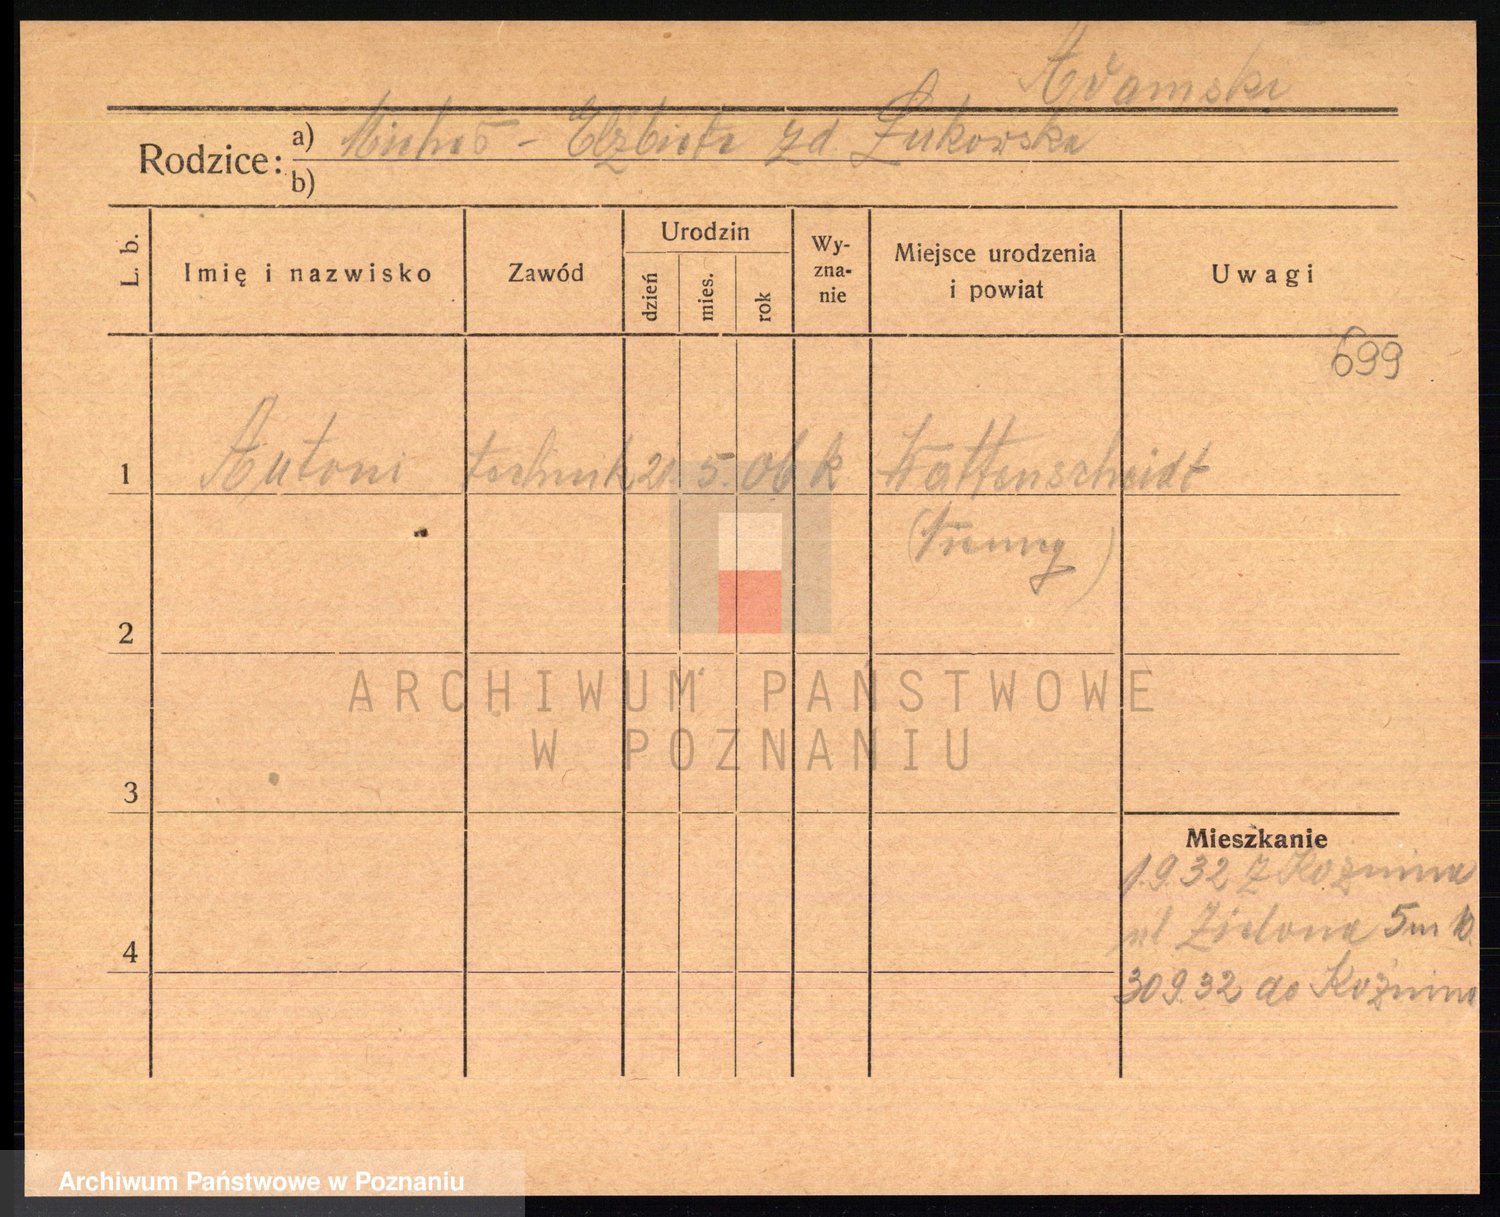 Adamski
Rodzice: a) Michał - Elżbieta zd. Łukowska
b)
L. b. Imię i nazwisko Zawód Urodzin dzień mies. rok Wy-zna-nie Miejsce urodzenia i powiat Uwagi
699
1 Antoni technik 21. 5. 06 k Wattenscheidt
(Niemcy)
2
ARCHIWUM PAŃSTWOWE
W POZNANIU
3
Mieszkanie
1.9.32 z Koźmina
4 ul Zielona 5 m 10.
30 9.32 do Koźmina
Archiwum Państwowe w Poznaniu